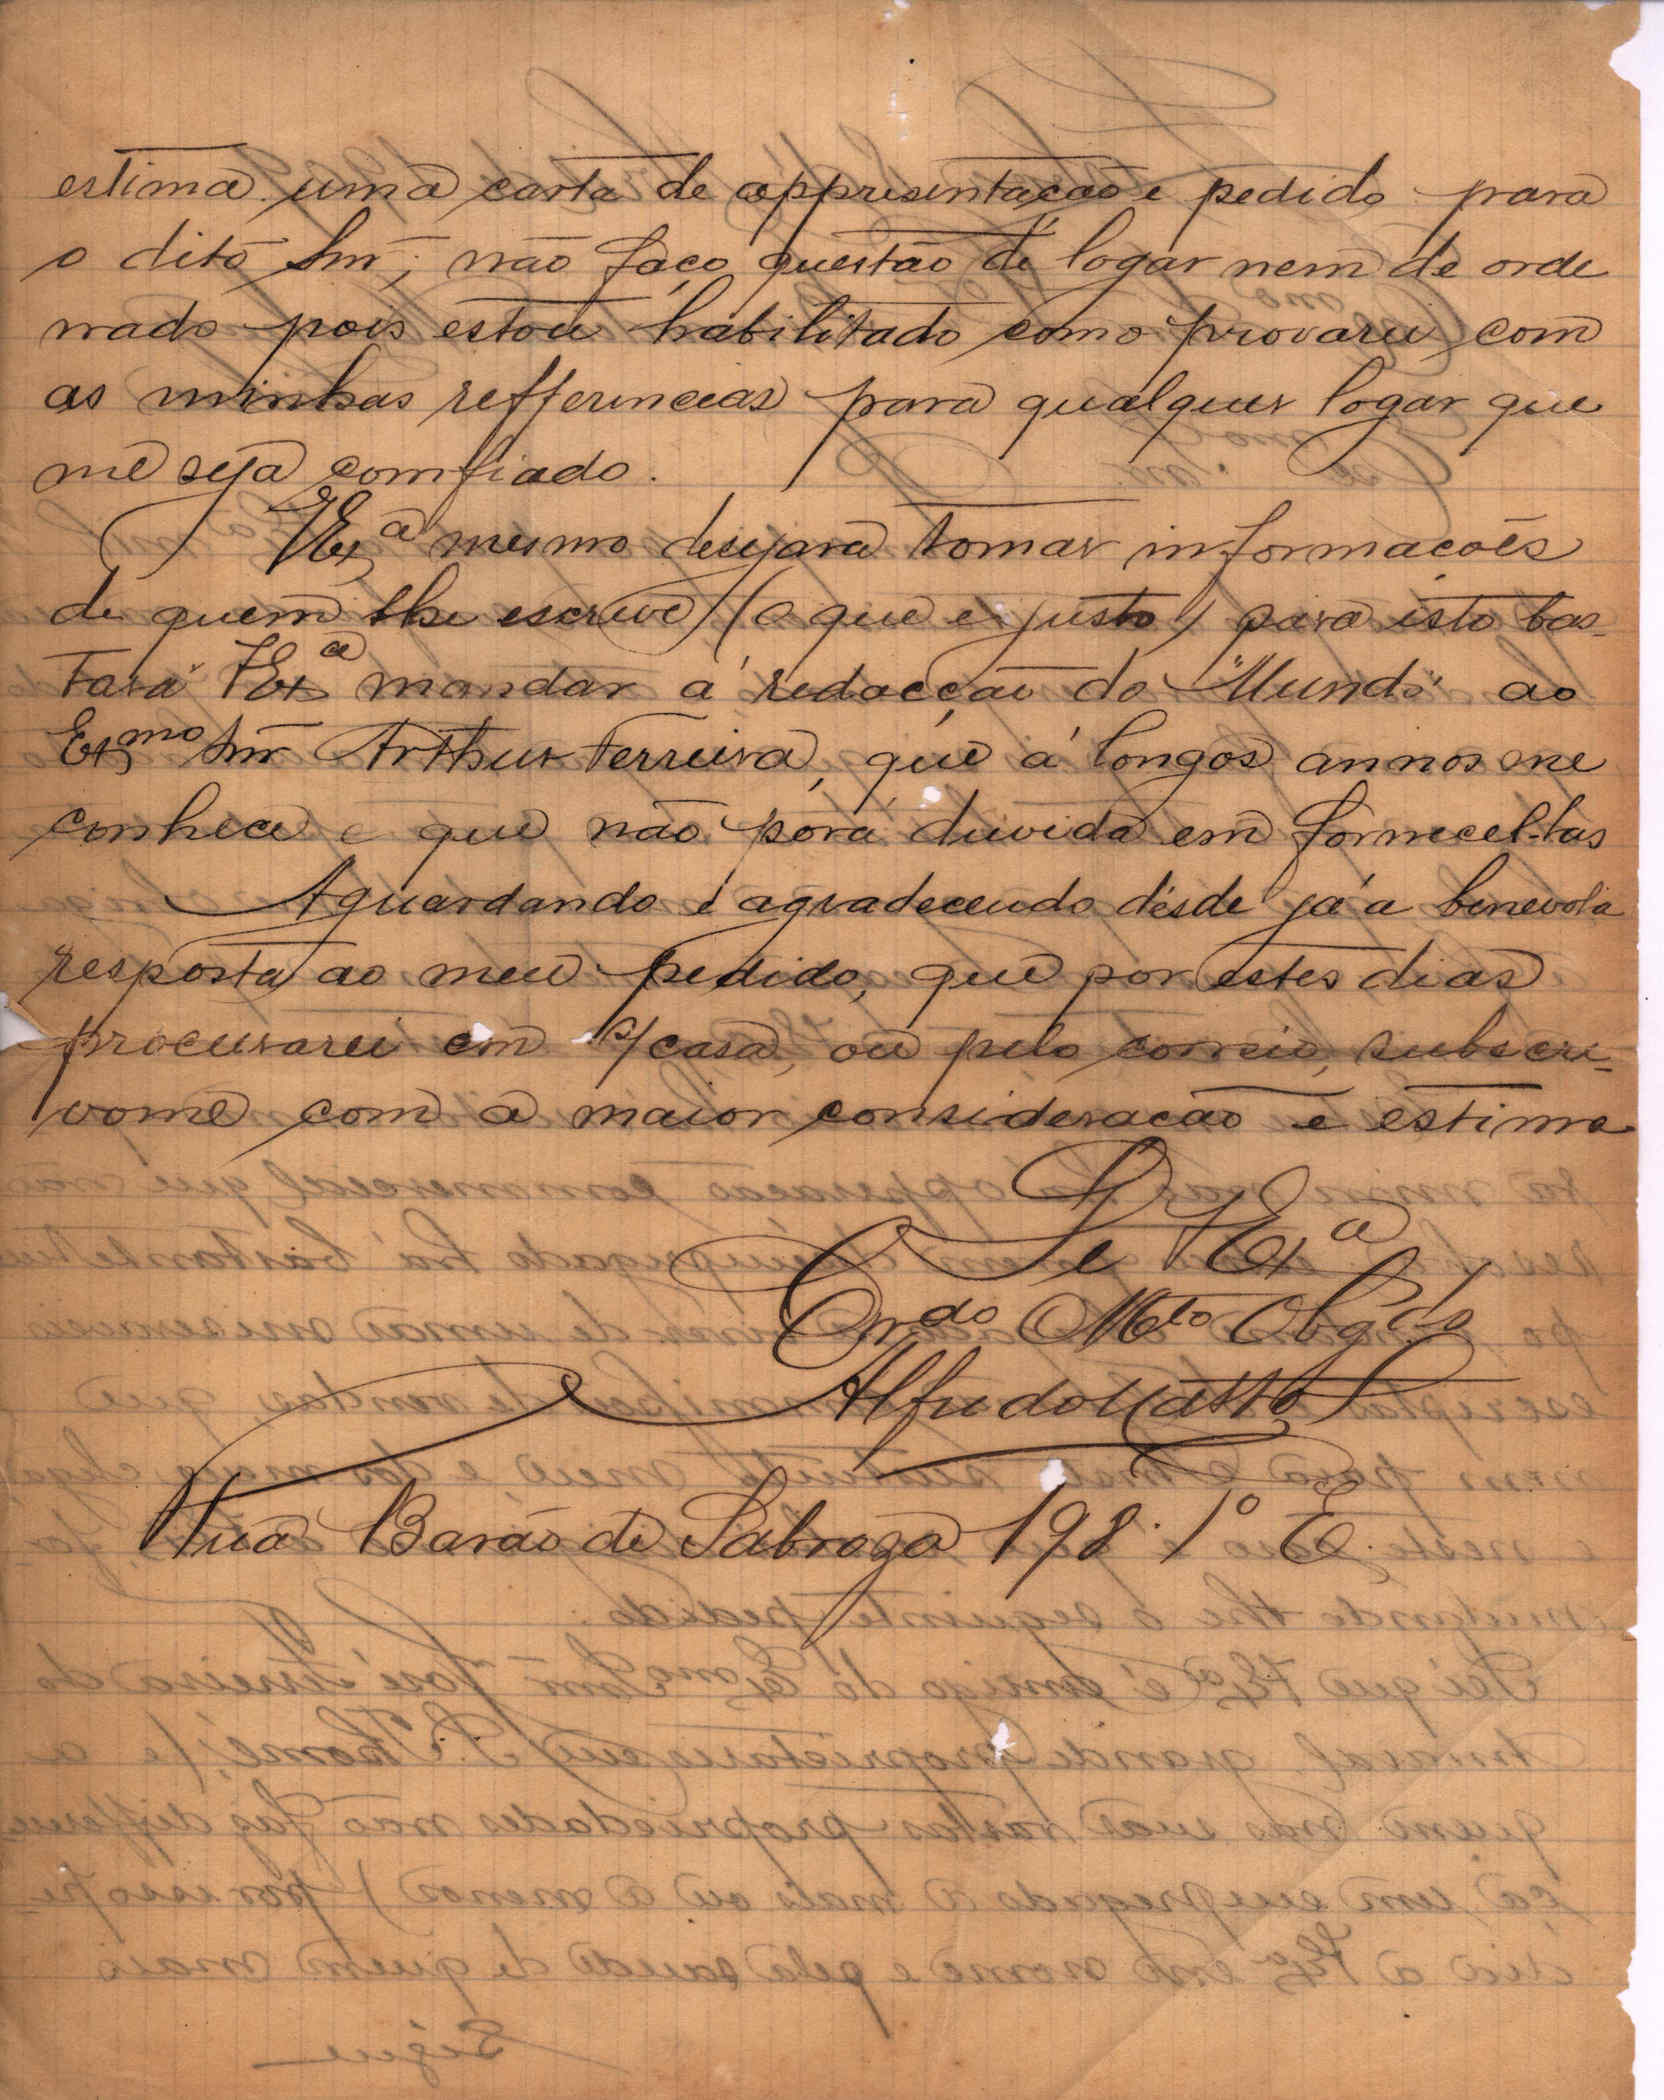 estima uma carta de appresentação e pedido para
o dito Snr; não faço questão de logar nem de orde
nado pois estou habilitado como provarei com
as minhas refferencias para qualquer logar que
me seja comfiado.
VEx.ª mesmo desejará tomar informacoēs
de quem lhe escreve (o que é justo) para isto bas-
tará VEx.ª mandar á redacção do "Mundo" ao
Ex.mo Snr Arthur Ferreira, que á longos annos me
conhece e que não porá duvida em fornecel-las
Aguardando e agradecendo désde já a benevola
resposta ao meu pedido, que por estes dias
procurarei em s/casa, ou pelo correio, subscre-
vome com a maior consideracão e estima
De VEx.ª
Cr.do M.to Obg.do
Alfredo Matto
Rua Barão de Sabroza 198. 1º E.